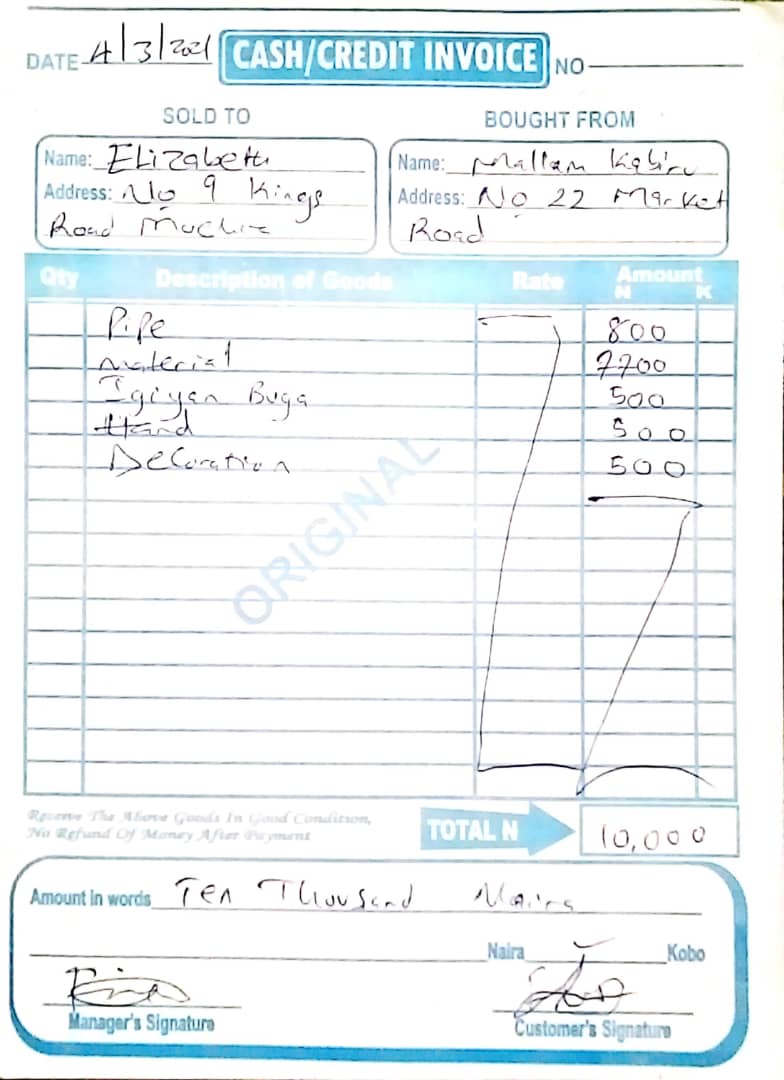 DATE 4/3/2021 CASH/CREDIT INVOICE NO
SOLD TO
Name: Elizabeth
Address: No 9 Kings
Road Muchia
BOUGHT FROM
Name: Mallam Kabiru
Address: No 22 Market
Road
Qty Description of Goods Rate Amount
N K
Pipe 800
Material 7700
Igiyan Buga 500
Hand 500
Decoration 500
ORIGINAL
Receive The Above Goods In Good Condition,
No Refund Of Money After Payment
TOTAL N 10,000
Amount in words Ten Thousand Naira
Naira Kobo
Manager's Signature
Customer's Signature